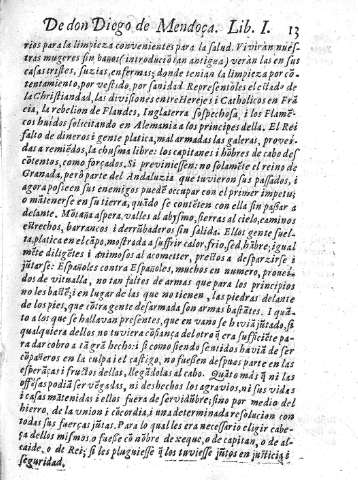 De don Diego de Mendoça. Lib. I. 13
rios para la limpieza convenientes para la salud. Vivirán nues-
tras mugeres sin baños (introducion tan antigua) verán las en sus
casas tristes, suzias, enfermas; donde tenian la limpieza por cō-
tentamiento, por vestido, por sanidad. Representòles el estado de
la Christiandad, las divisiones entre Herejes i Catholicos en Frā-
cia, la rebelion de Flandes, Inglaterra sospechosa, i los Flamē-
cos huidos solicitando en Alemania a los principes della. El Rei
falto de dineros i gente platica, mal armadas las galeras, proveī-
das a remiēdos, la chusma libre: los capitanes i hōbres de cabo des-
cōtentos, como forçados. Si previniessen: no solamēte el reino de
Granada, però parte del Andaluzia que tuvieron sus passados, i
agora posseen sus enemigos puedē occupar con el primer impetu;
o mātenerse en su tierra, quādo se contētē con ella sin passar a
delante. Mōtaña aspera, valles al abysmo, sierras al cielo, caminos
estrechos, barrancos i derrūbaderos sin salida. Ellos gente suel-
ta, platica en el cāpo, mostrada a suffrir calor, frio, sed, hābre; igual
mēte diligētes i animosos al acometer, prestos a desparzirse i
jūtarse: Españoles contra Españoles, muchos en numero, proveī-
dos de vitualla, no tan faltos de armas que para los principios
no les bastē; i en lugar de las que no tienen, las piedras delante
de los pies, que cōtra gente desarmada son armas bastātes. I quā-
to a los que se hallavan presentes, que en vano se havian jūtado, si
qualquiera dellos no tuviera cōfiança del otro q̄ era sufficiēte pa-
ra dar cobro a tā grā hecho: i si como siendo sentidos havian de ser
cōpañeros en la culpa i el castigo, no fuessen despues parte en las
esperāças i fructos dellas, llegādolas al cabo. Quāto màs q̄ ni las
offēsas podiā ser vēgadas, ni deshechos los agravios, ni sus vidas
i casas mātenidas i ellos fuera de servidūbre; sino por medio del
hierro, de la union i cōcordia, i una determinada resolucion con
todas sus fuerças jūtas. Para lo qual les era necessario eligir cabe-
ça dellos mismos, o fuesse cō nōbre de xeque, o de capitan, o de al-
caide, o de Rei; si les pluguiesse q̄ los tuviesse jūtos en justicia i
seguridad.